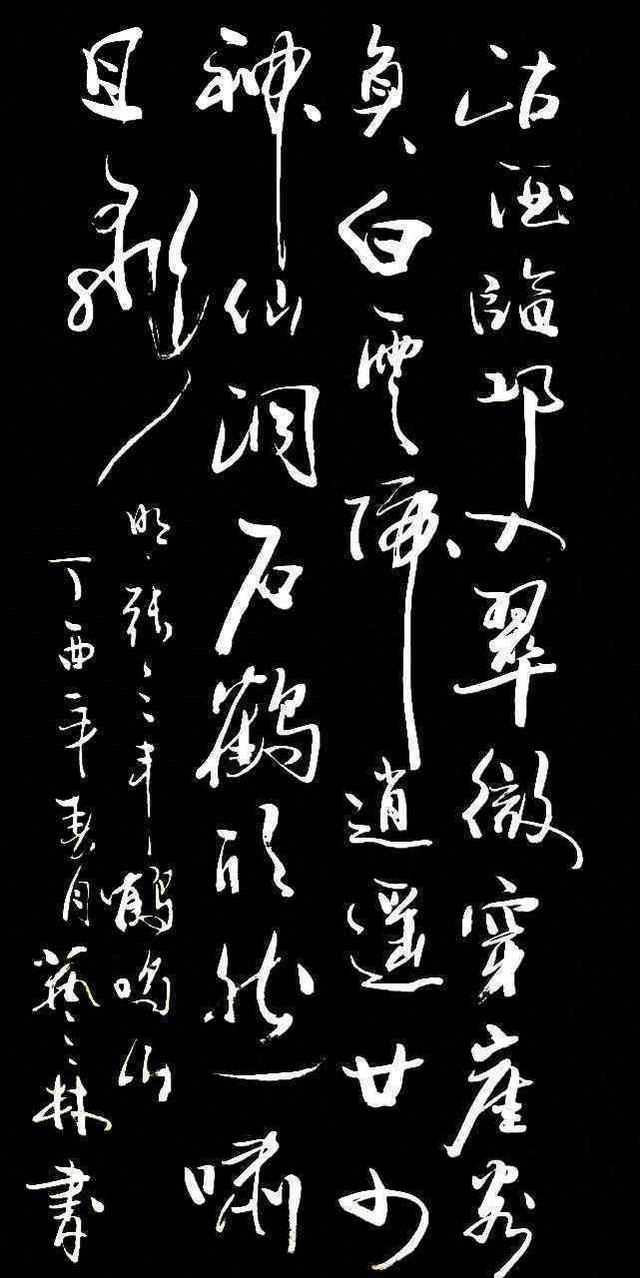 沽酒臨邛入翠微穿崖客
負白雲歸逍遥廿
神仙洞石鶴欣然一嘯
且飛
明·張三丰鶴鳴山
丁酉年月藝林書